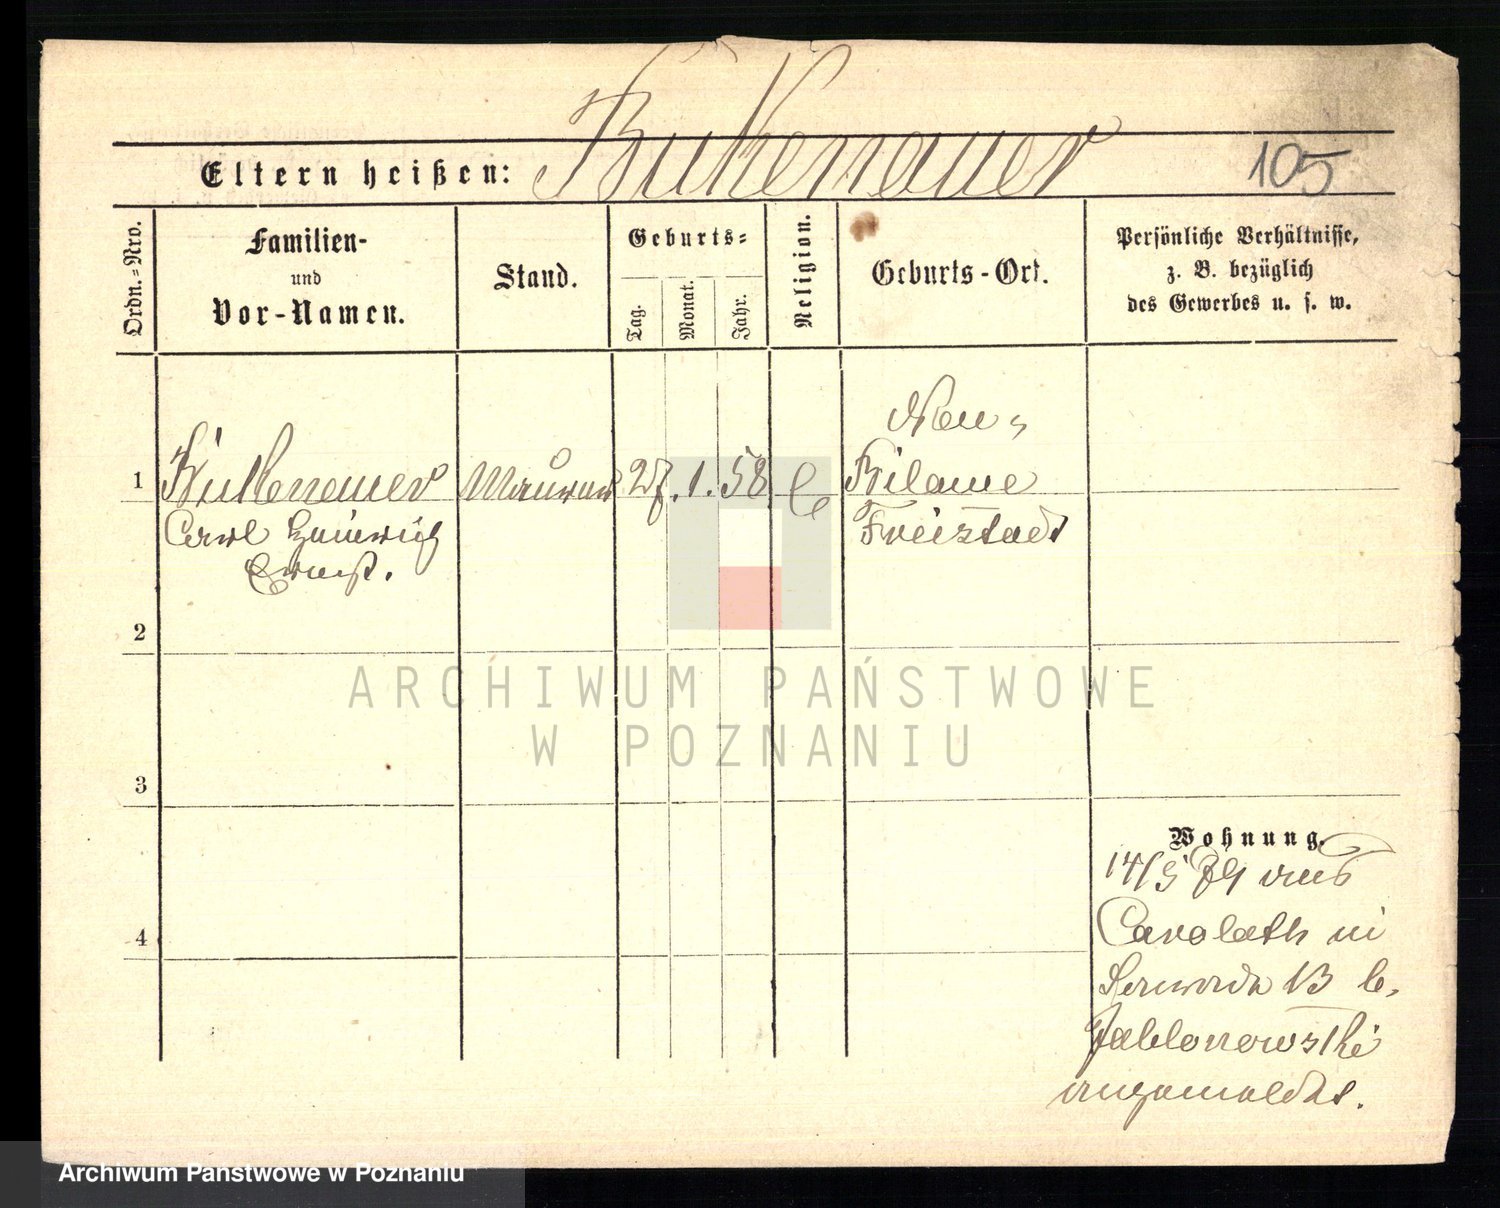 Eltern heißen:
105
Ordn.=Nro.
Familien-
und
Vor-Namen.
Stand.
Geburts=
Tag.
Monat.
Jahr.
Religion.
Geburts-Ort.
Persönliche Verhältnisse,
z. B. bezüglich
des Gewerbes u. s. w.
1
Maurer
27. 1. 58
Neu-
Bilawe
Freistadt
Carl Heinrich
Ernst.
2
3
4
Wohnung.
14/5 79 aus
Carolath in
13
Jablonowski
angemeldet.
ARCHIWUM PAŃSTWOWE
W POZNANIU
Archiwum Państwowe w Poznaniu